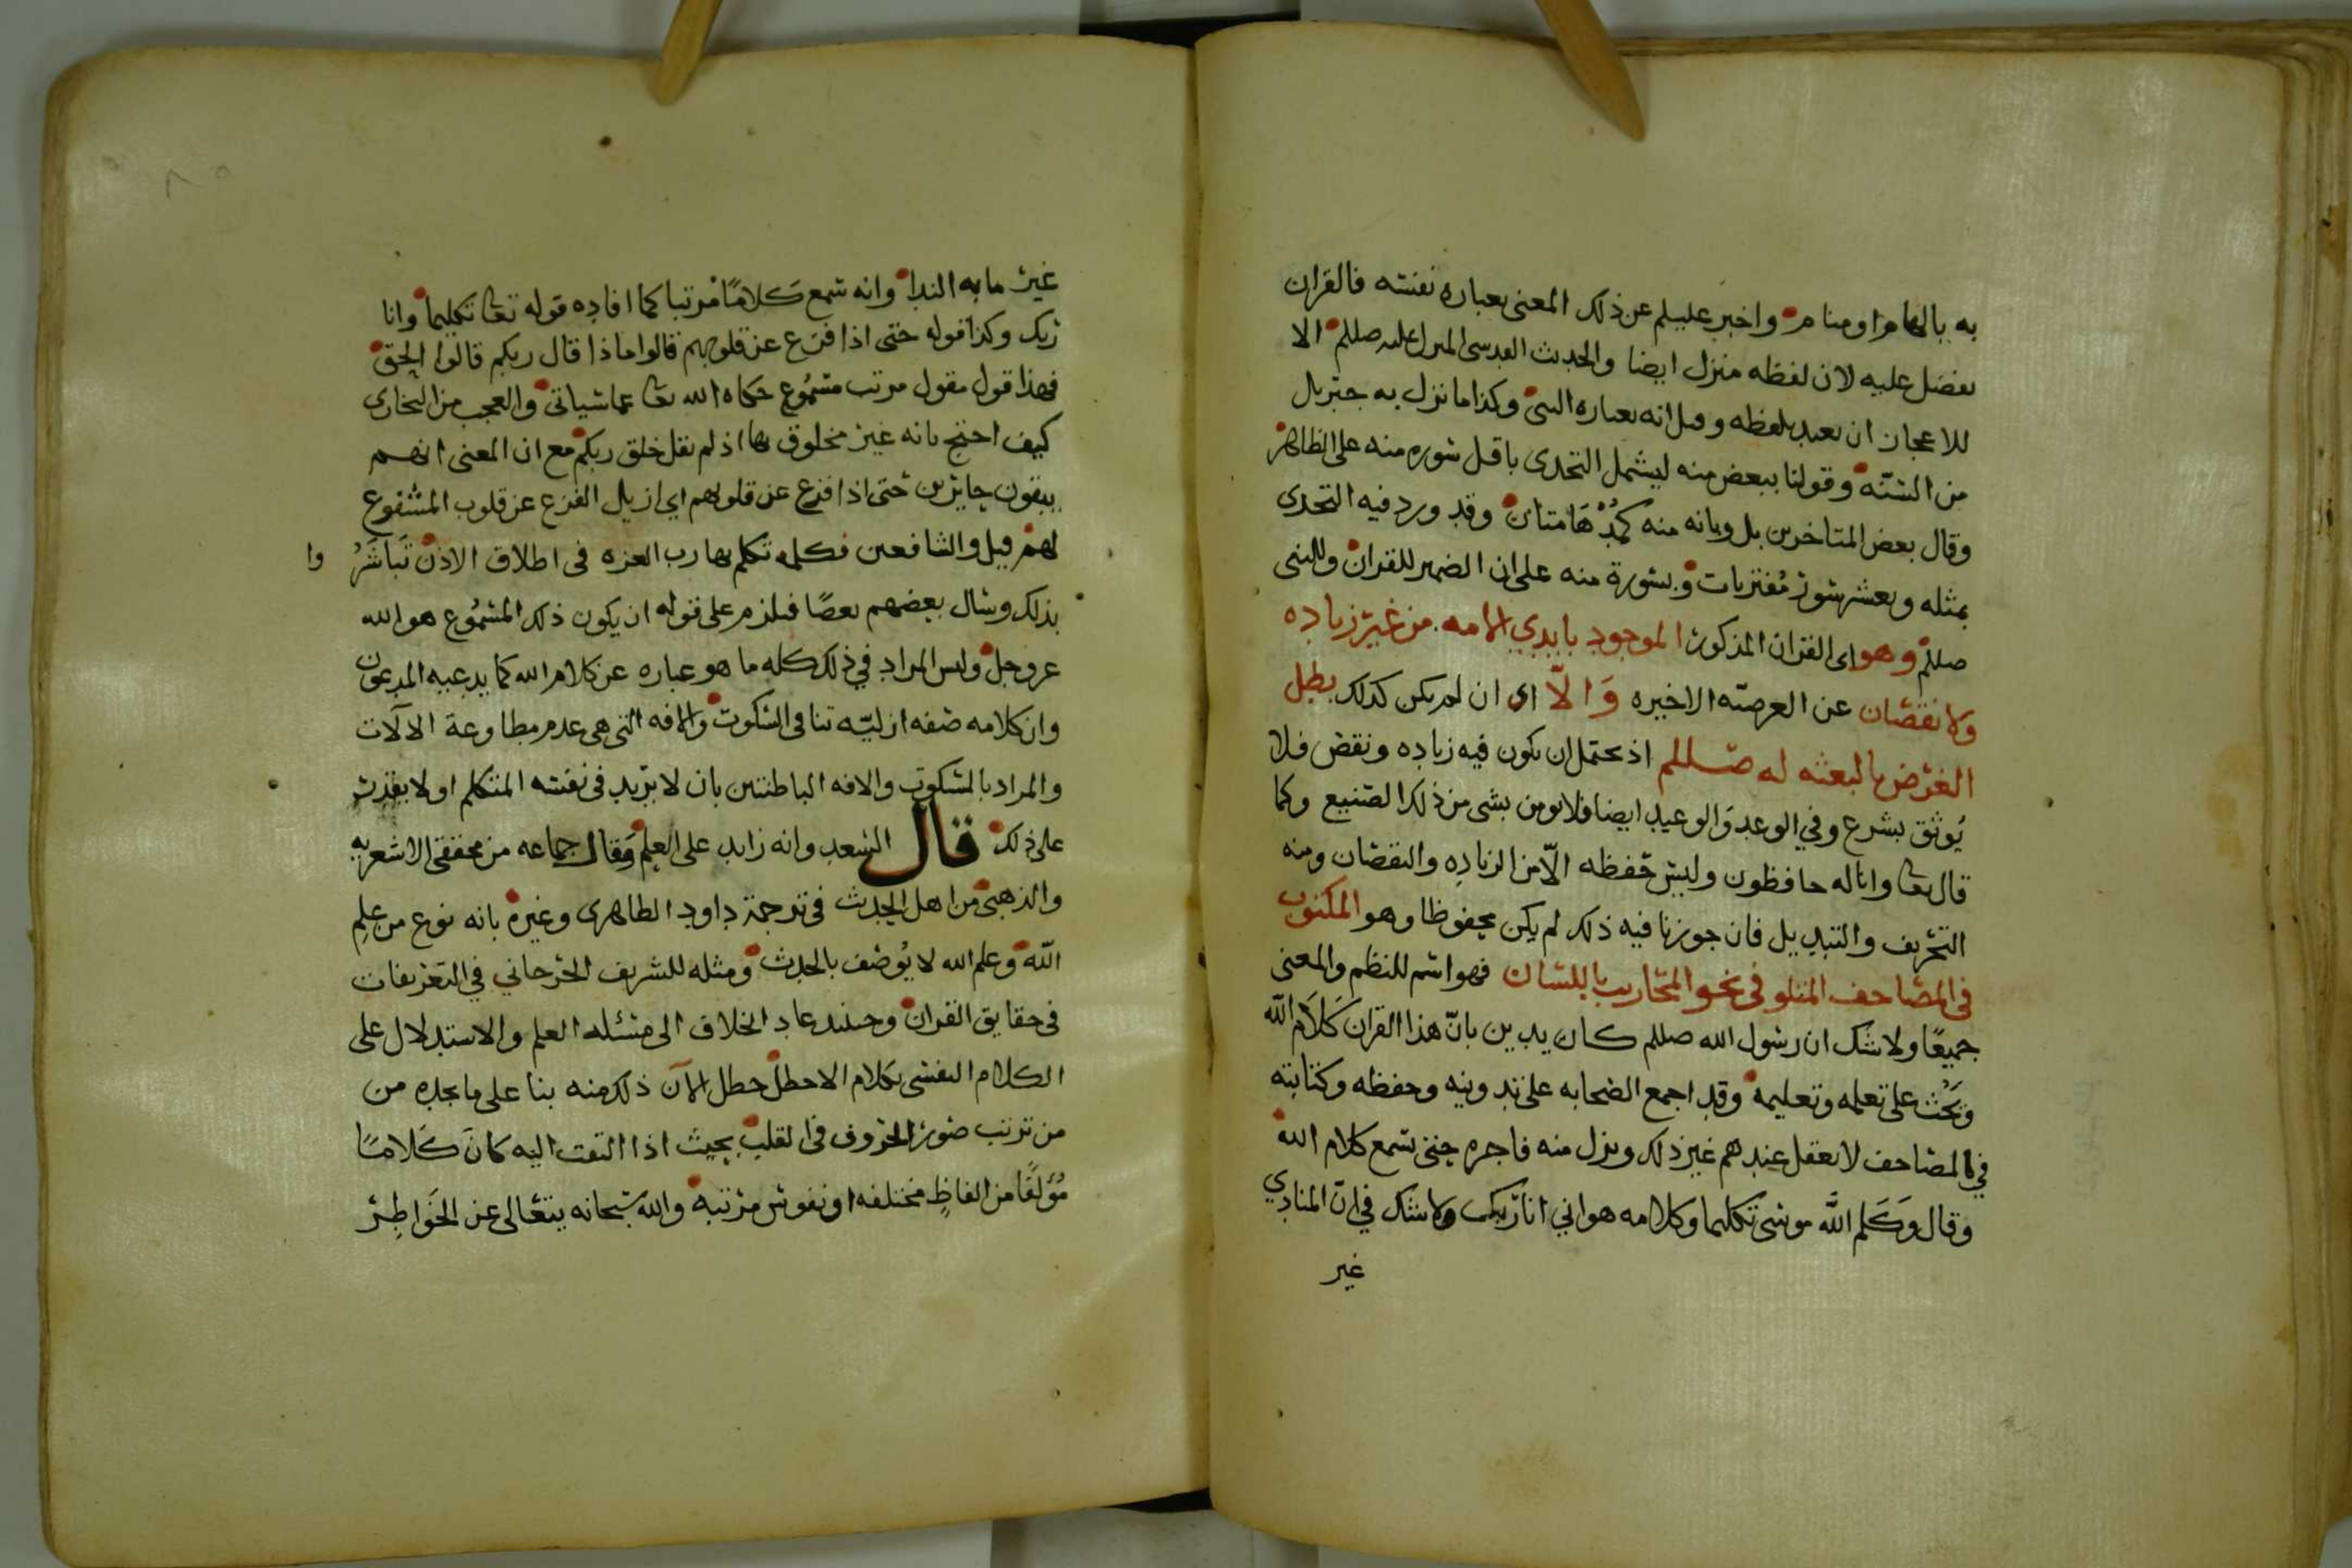 به بالهام او منام واخبر عليلم عن ذلك المعنى بعباره نفسه فالقران
يفضل عليه لان لفظه منزل ايضا والحديث القدسى المنزل عليه صللم الا
للاعجاز ان تعبد بلفظه وقيل انه بعباره النبى وكذا ما نزل به جبريل
من السنّه وقولنا ببعض منه ليشمل التحدى باقل سوره منه على الظاهر
وقال بعض المتاخرين بل وبانه منه كمُدْهَامتان وقد ورد فيه التحدى
بمثله وبعشر سور مُفتريات وبسورة منه على ان الضمير للقران وللنبى
صللم وهو اى القران المذكور الموجود بايدي الامه من غير زياده
ولا نقصان عن العرضه الاخيره وَالّا اى ان لم يكن كذلك بطل
الغرض بالبعثه له صللم اذ يحتمل ان يكون فيه زياده ونقص فلا
يُوثق بشرع وفي الوعد وَالوعيد ايضا فلا نومن بشى من ذلك الصنيع وكما
قال تعا وانا له حافظون وليس حفظه الّا من الزياده والنقصان ومنه
التحريف والتبديل فان جوزنا فيه ذلك لم يكن محفوظا وهو المكتوب
فى المصاحف المتلو فى نحو المحاريب باللسان فهو اسم للنظم والمعنى
جميعًا ولا شك ان رسول الله صللم كان يدين بانّ هذا القران كَلَام الله
ويَحُث على تعلمه وتعليمه وقد اجمع الصحابه على تدوينه وحفظه وكتابته
في المصاحف لا يعقل عندهم غير ذلك ونزل منه فاجره حتى يسمع كلام الله
وقال وَكَلم اللَّه موسى تكليما وكلامه هو اني انا ربك ولا شك في انّ المنادي
غير
غير ما به الندا وانه سمع كَلامًا مرتبا كما افاده قوله تعا تكليما وانا
ربك وكذا قوله حتى اذا فزع عن قلوبهم قالوا ماذا قال ربكم قالوا الحق
فهذا قول مقول مرتب مسْمُوع حكاه الله تعا عما سياتى والعجب من البخارى
كيف احتج بانه غير مخلوق بها اذ لم يقل خلق ربكم مع ان المعنى انهم
يبقون حايرين حتى اذا فزع عن قلوبهم اي ازيل الفزع عن قلوب المشفوع
لهم قيل والشافعين فكلمه تكلم بها رب العزه فى اطلاق الاذن تَبَاشَرُ وا
بذلك وسال بعضهم بعضًا فيلزم على قوله ان يكون ذلك المسْمُوع هو الله
عز وجل وليس المراد في ذلك كله ما هو عباره عن كلام الله كما يدعيه المدعون
وان كلامه صفه ازليّه تنافى السكوت والافه التى هى عدم مطاوعة الالات
والمراد بالسكوت والافه الباطنتين بان لا يريد فى نفسه المتكلم او لا يقدر
على ذلك قال السعد وانه زايد على العلم وَقال جماعه من محققى الاشعريه
والذهبى من اهل الحديث فى ترجمة داود الظاهرى وغيره بانه نوع من علم
اللّه وعلم الله لا يُوصف بالحدث ومثله للشريف الجرجاني في التعريفات
فى حقايق القران وحينئد عاد الخلاف الى مسئله العلم والاستدلال على
الكلام النفسى بكلام الاخطل خطل لان ذلك منه بنا على ما يجده من
من ترتب صور الحروف فى القلب بحيث اذا التفت اليه كان كَلامًا
مُؤلفًا من الفاظٍ مختلفه او نقوش مرتبه والله سبحانه يتعالى عن الخَواطِر